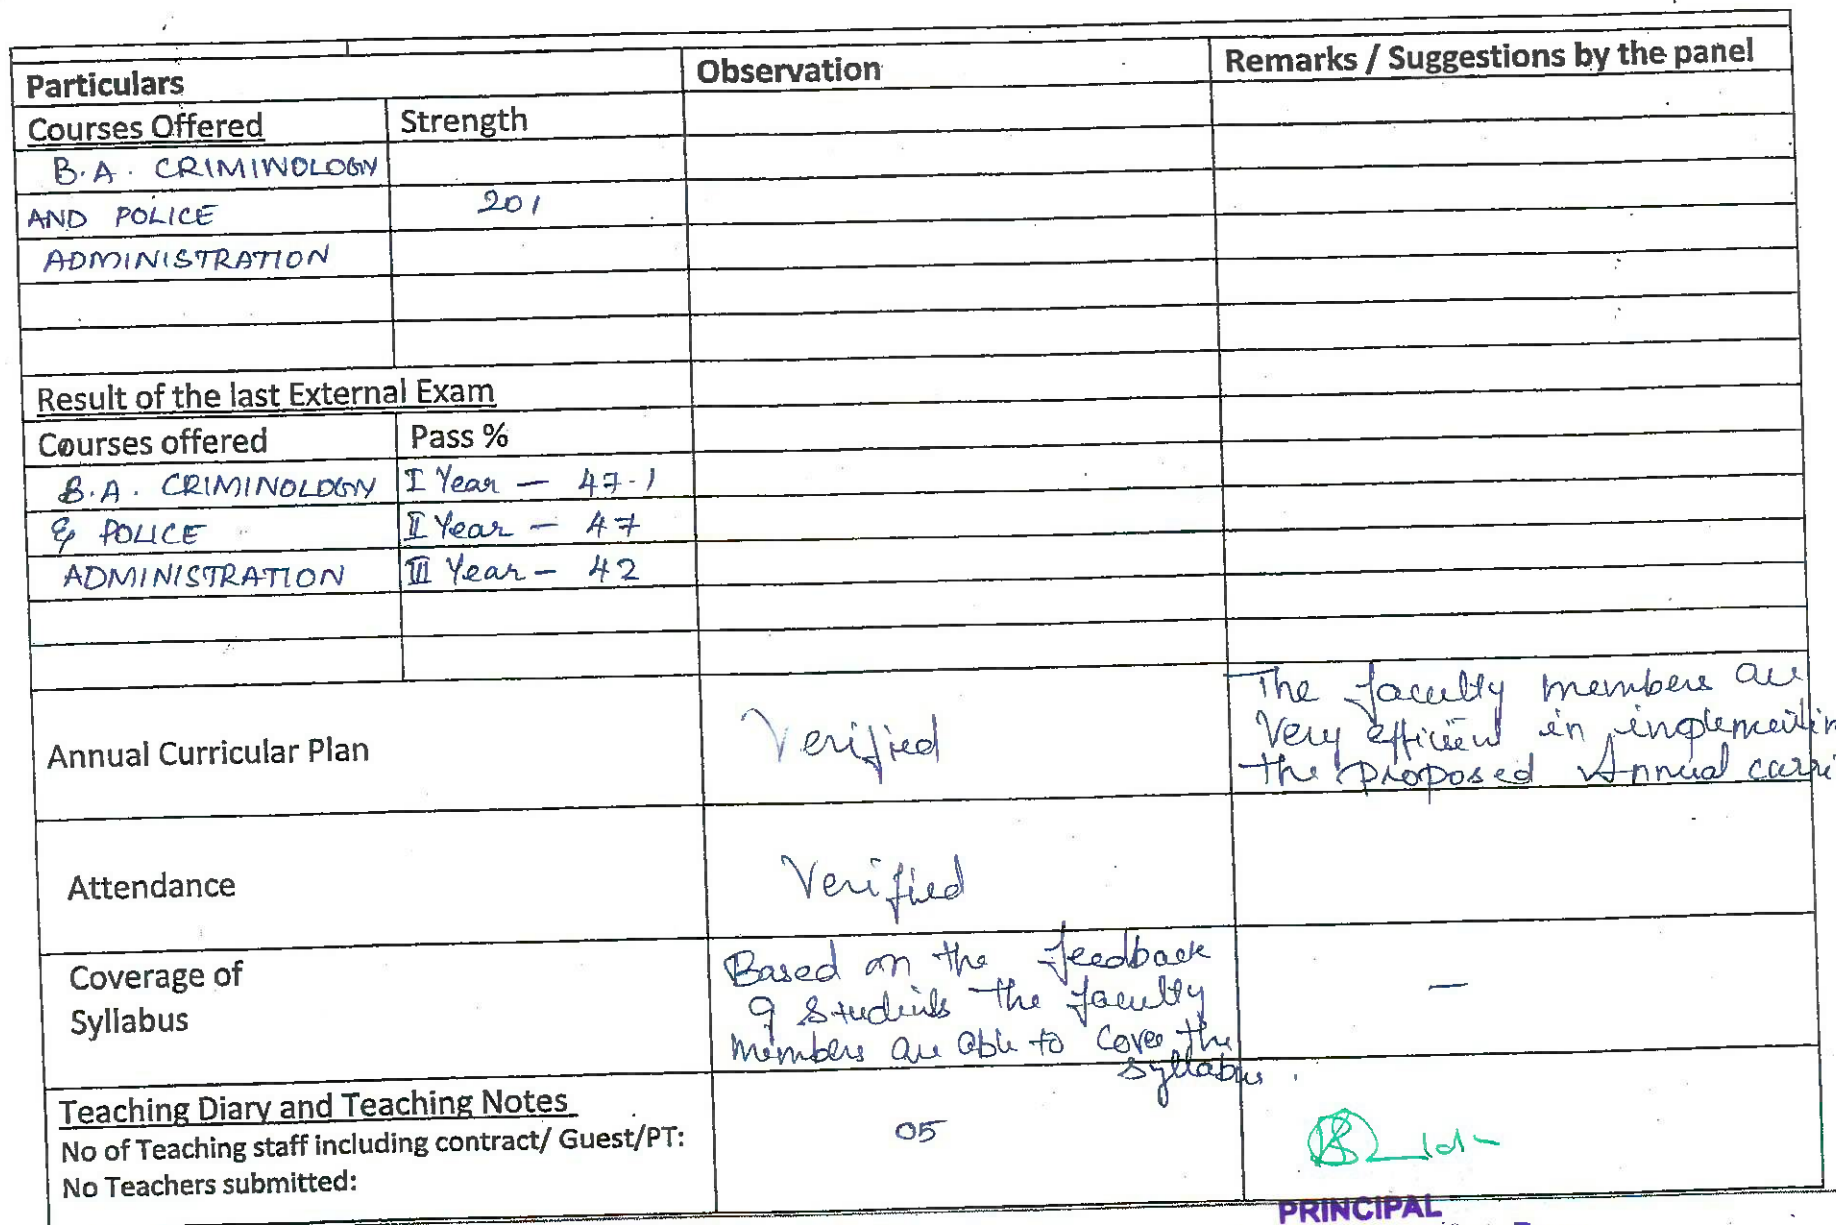 Particulars Observation Remarks / Suggestions by the panel
Courses Offered Strength
B.A. CRIMINOLOGY
AND POLICE 201
ADMINISTRATION
Result of the last External Exam
Courses offered Pass %
B.A. CRIMINOLOGY I Year — 47.1
& POLICE II Year — 47
ADMINISTRATION III Year — 42
Annual Curricular Plan
Verified
The faculty members are
Very efficient in implementin
the proposed Annual curri
Attendance Verified
Coverage of
Syllabus
Based on the feedback
of students the faculty
members are able to cover the
syllabus.
—
Teaching Diary and Teaching Notes
No of Teaching staff including contract/ Guest/PT: 05
No Teachers submitted:
PRINCIPAL